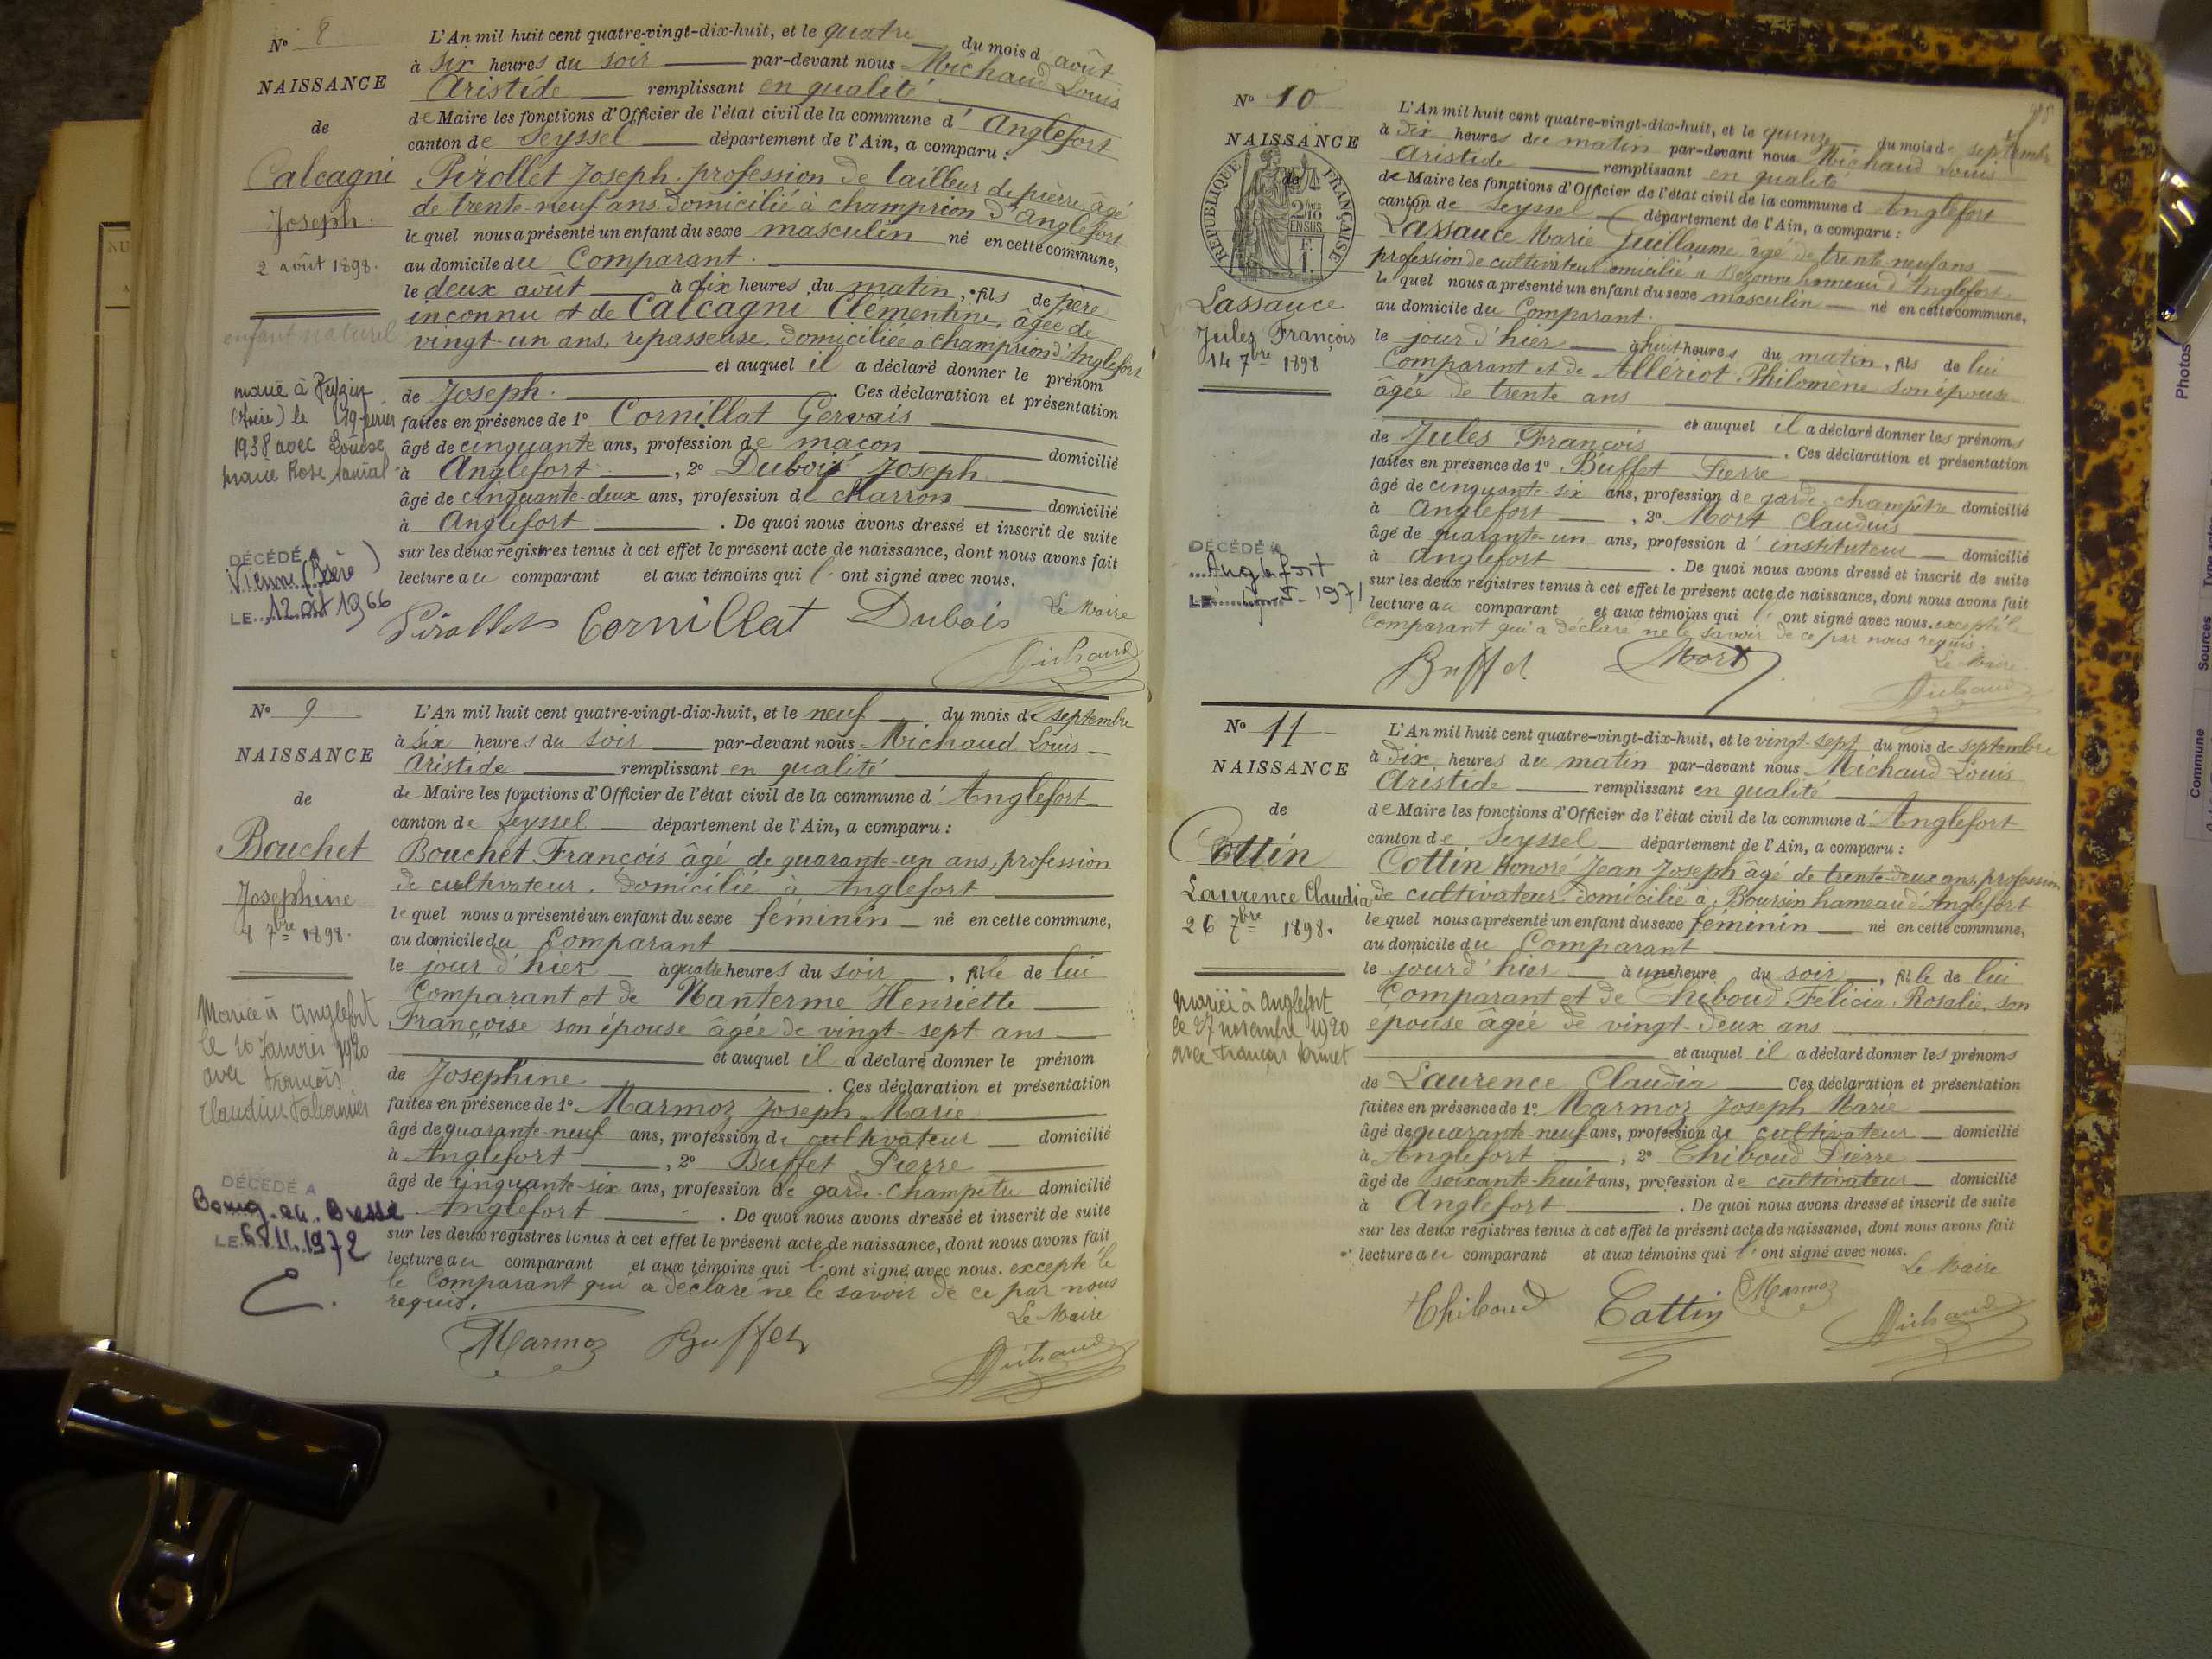 N° 8
NAISSANCE
de
Calcagni
Joseph
2 août 1898.
enfant naturel
marié à
(Isère) le 19
1938 avec Louise
Marie Rose
DÉCÉDÉ A
Vienne (Isère)
LE 12 1966
L'An mil huit cent quatre-vingt-dix-huit, et le quatre du mois d'août
à six heures du soir par-devant nous Michaud Louis
Aristide remplissant en qualité
de Maire les fonctions d'Officier de l'état civil de la commune d'Anglefort
canton de Seyssel département de l'Ain, a comparu :
Pirollet Joseph. profession de tailleur de pierre, âgé
de trente-neuf ans domicilié à champrion d'Anglefort
lequel nous a présenté un enfant du sexe masculin né en cette commune,
au domicile du Comparant.
le deux août à dix heures du matin, fils de père
inconnu et de Calcagni Clémentine, âgée de
vingt-un ans, repasseuse, domiciliée à champrion d'Anglefort
et auquel il a déclaré donner le prénom
de Joseph. Ces déclaration et présentation
faites en présence de 1° Cornillat Gervais
âgé de cinquante ans, profession de maçon domicilié
à Anglefort, 2° Dubois Joseph
âgé de cinquante-deux ans, profession de charron domicilié
à Anglefort. De quoi nous avons dressé et inscrit de suite
sur les deux registres tenus à cet effet le présent acte de naissance, dont nous avons fait
lecture au comparant et aux témoins qui l'ont signé avec nous.
Pirollet Cornillat Dubois Le Maire
Michaud
N° 9
NAISSANCE
de
Bouchet
Josephine
8 7bre 1898.
Mariée à Anglefort
le 10 Janvier 1920
avec François
Claudius
DÉCÉDÉ A
Bourg-en-Bresse
LE 6.11.1972
L'An mil huit cent quatre-vingt-dix-huit, et le neuf du mois de septembre
à six heures du soir par-devant nous Michaud Louis
Aristide remplissant en qualité
de Maire les fonctions d'Officier de l'état civil de la commune d'Anglefort
canton de Seyssel département de l'Ain, a comparu :
Bouchet François âgé de quarante-un ans, profession
de cultivateur, domicilié à Anglefort
lequel nous a présenté un enfant du sexe féminin né en cette commune,
au domicile du Comparant
le jour d'hier à quatre heures du soir, fille de lui
Comparant et de Nanterme Henriette
Françoise son épouse âgée de vingt-sept ans
et auquel il a déclaré donner le prénom
de Josephine. Ces déclaration et présentation
faites en présence de 1° Marmoz Joseph Marie
âgé de quarante-neuf ans, profession de cultivateur domicilié
à Anglefort, 2° Buffet Pierre
âgé de cinquante-six ans, profession de garde-champêtre domicilié
Anglefort. De quoi nous avons dressé et inscrit de suite
sur les deux registres tenus à cet effet le présent acte de naissance, dont nous avons fait
lecture au comparant et aux témoins qui l'ont signé avec nous. excepté le
le Comparant qui a déclaré ne le savoir de ce par nous
requis.
Le Maire
Marmoz Buffet
Michaud
N° 10
NAISSANCE
de
RÉPUBLIQUE FRANÇAISE
2/10 EN SUS
Lassauce
Jules François
14 7bre 1898
DÉCÉDÉ A
Anglefort
LE 1971
L'An mil huit cent quatre-vingt-dix-huit, et le quinze du mois de septembre
à dix heures du matin par-devant nous Michaud Louis
Aristide remplissant en qualité
de Maire les fonctions d'Officier de l'état civil de la commune d'Anglefort
canton de Seyssel département de l'Ain, a comparu :
Lassauce Marie Guillaume âgé de trente-neuf ans
profession de cultivateur domicilié à hameau d'Anglefort.
lequel nous a présenté un enfant du sexe masculin né en cette commune,
au domicile du Comparant.
le jour d'hier à huit heures du matin, fils de lui
Comparant et de Allériot Philomène son épouse
âgée de trente ans
et auquel il a déclaré donner les prénoms
de Jules François. Ces déclaration et présentation
faites en présence de 1° Buffet Pierre
âgé de cinquante-six ans, profession de garde-champêtre domicilié
à Anglefort, 2° Mort Claudius
âgé de quarante-un ans, profession d'instituteur domicilié
à Anglefort. De quoi nous avons dressé et inscrit de suite
sur les deux registres tenus à cet effet le présent acte de naissance, dont nous avons fait
lecture au comparant et aux témoins qui l'ont signé avec nous. excepté le
Comparant qui a déclaré ne le savoir de ce par nous requis.
Le Maire
Buffet Mort
Michaud
N° 11
NAISSANCE
de
Cottin
Laurence Claudia
26 7bre 1898.
mariée à Anglefort
le 27 novembre 1920
avec François
L'An mil huit cent quatre-vingt-dix-huit, et le vingt-sept du mois de septembre
à dix heures du matin par-devant nous Michaud Louis
Aristide remplissant en qualité
de Maire les fonctions d'Officier de l'état civil de la commune d'Anglefort
canton de Seyssel département de l'Ain, a comparu :
Cottin Honoré Jean Joseph âgé de trente-deux ans, profession
de cultivateur domicilié à Boursin hameau d'Anglefort
lequel nous a présenté un enfant du sexe féminin né en cette commune,
au domicile du Comparant
le jour d'hier à une heure du soir, fille de lui
Comparant et de Thiboud Félicia Rosalie, son
épouse âgée de vingt-deux ans
et auquel il a déclaré donner les prénoms
de Laurence Claudia Ces déclaration et présentation
faites en présence de 1° Marmoz Joseph Marie
âgé de quarante-neuf ans, profession de cultivateur domicilié
à Anglefort, 2° Thiboud Pierre
âgé de soixante-huit ans, profession de cultivateur domicilié
à Anglefort. De quoi nous avons dressé et inscrit de suite
sur les deux registres tenus à cet effet le présent acte de naissance, dont nous avons fait
lecture au comparant et aux témoins qui l'ont signé avec nous.
Le Maire
Thiboud Cottin Marmoz
Michaud
Photos
Sources
Commune